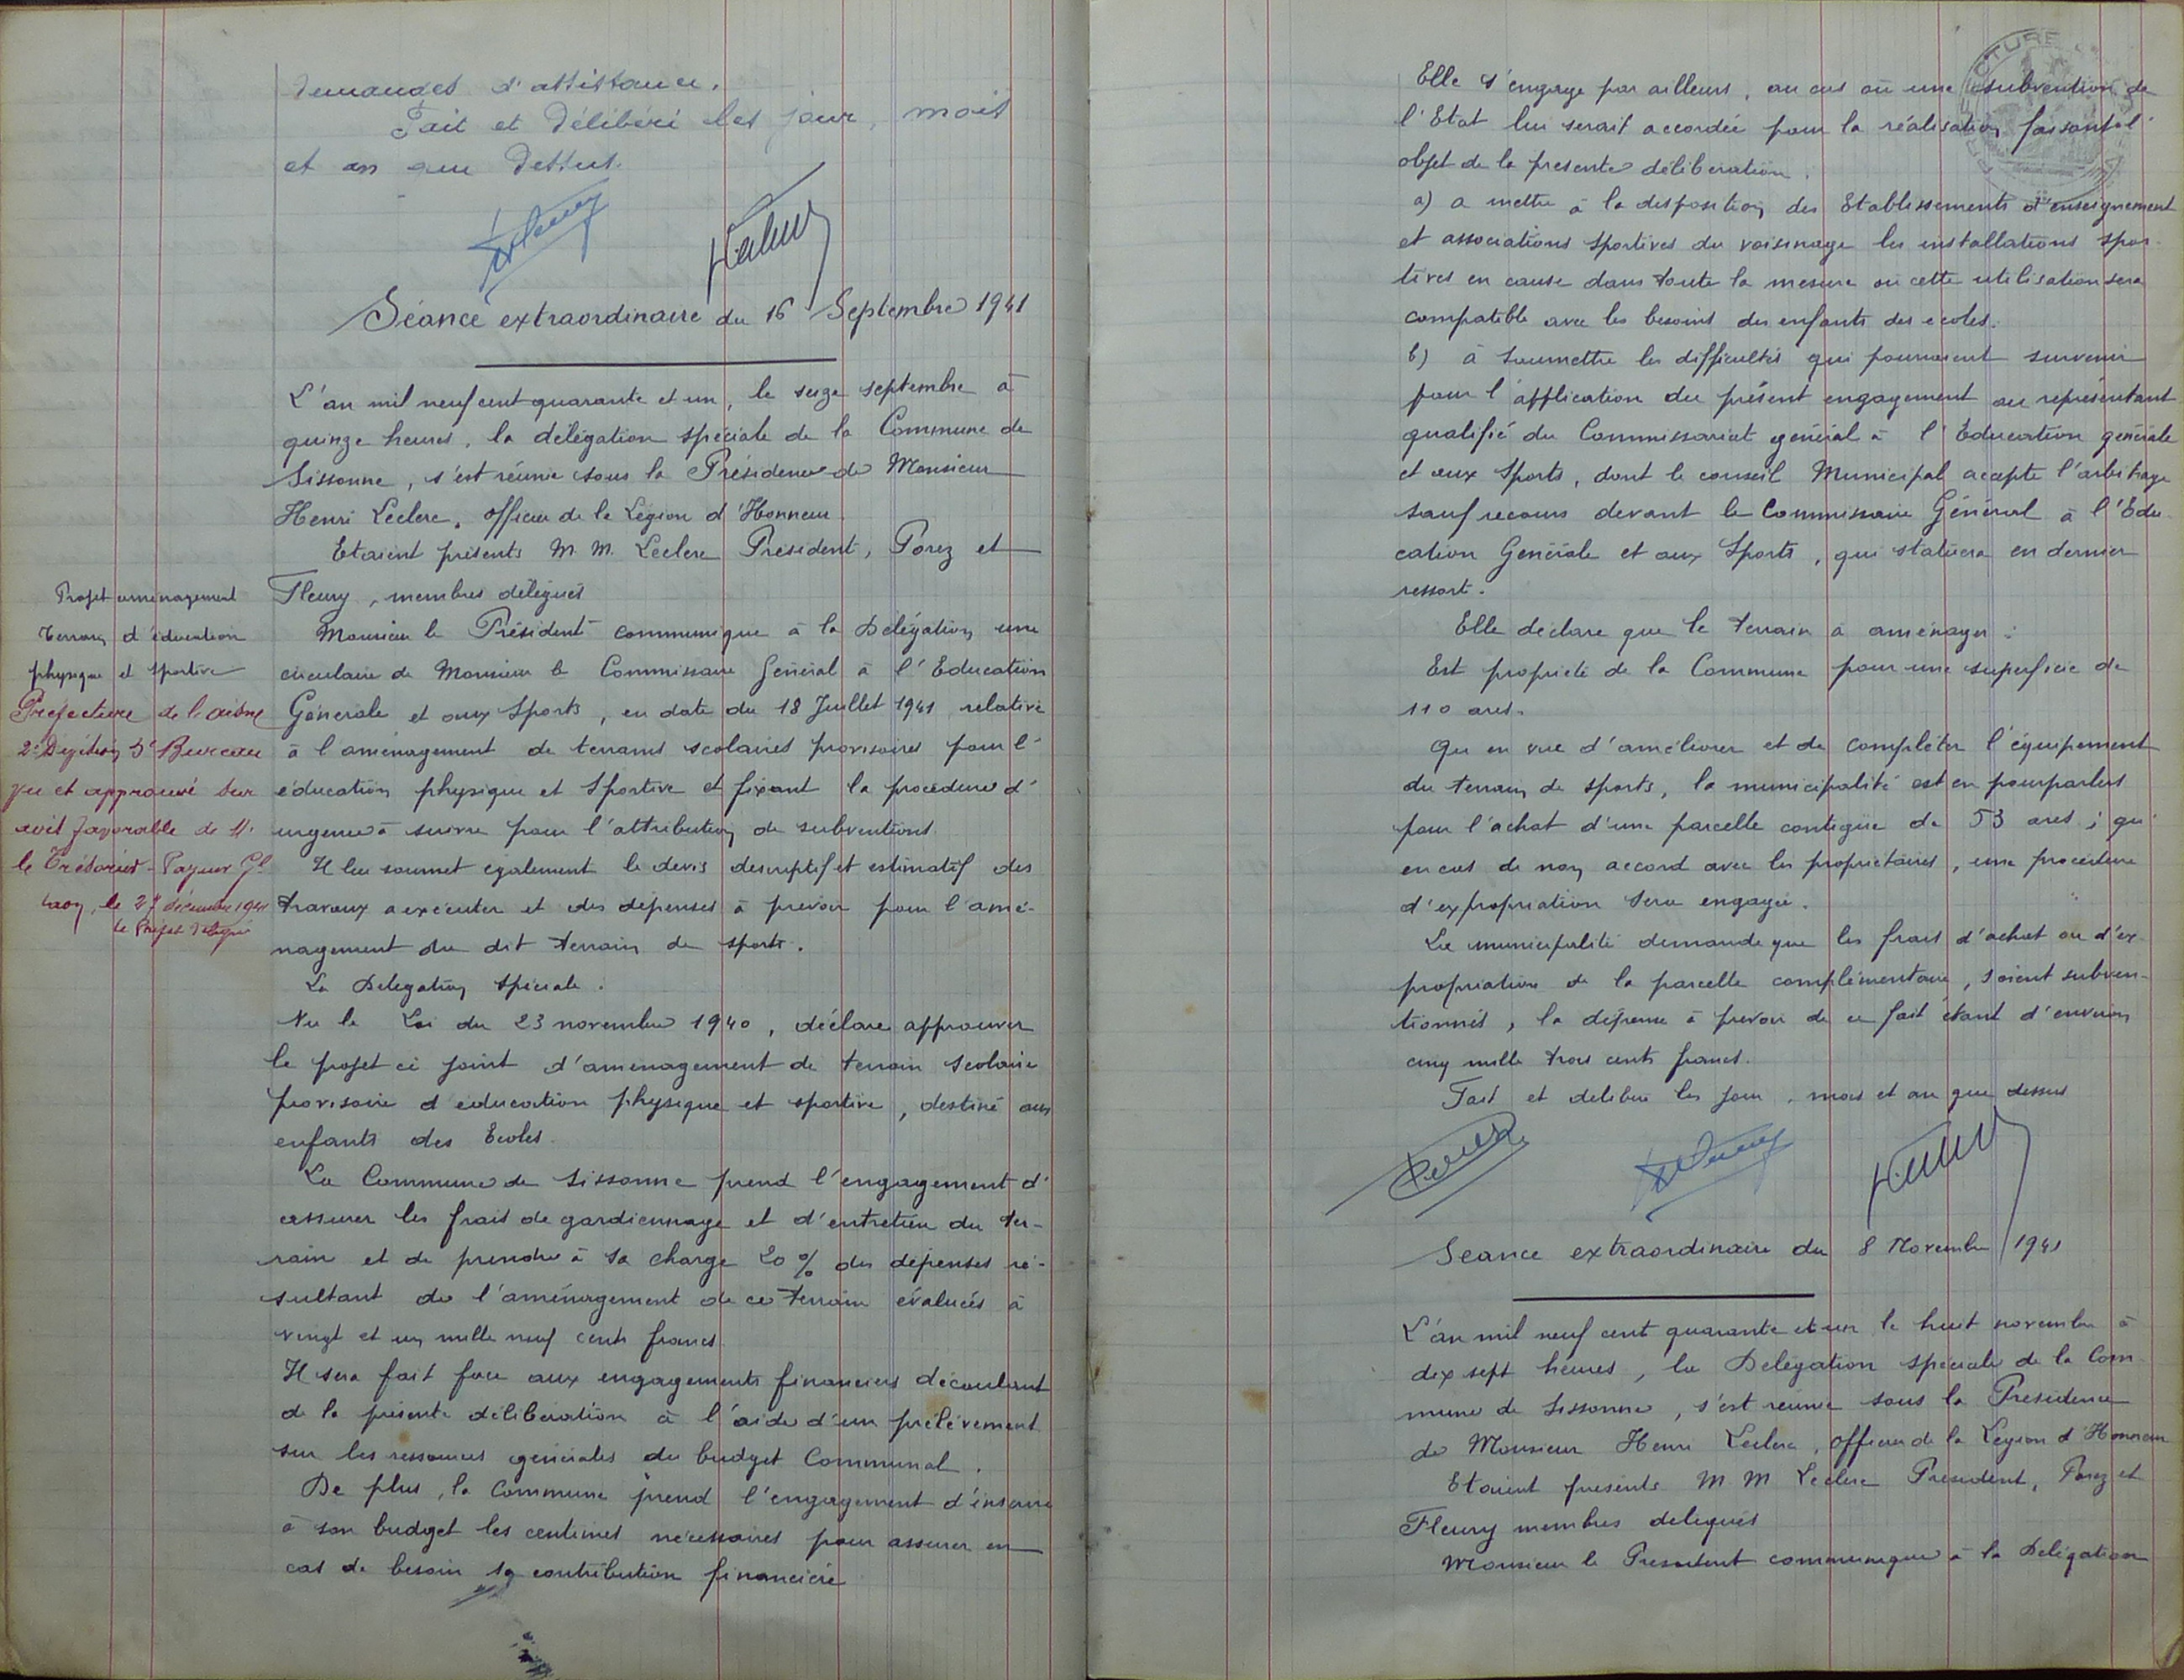 demandes d'assistance.
Fait et Délibéré les jour, mois
et an que dessus.
Séance extraordinaire du 16 Septembre 1941
L'an mil neuf cent quarante et un, le seize septembre à
quinze heures, la délégation spéciale de la Commune de
Sissonne, s'est réunie sous la Présidence de Monsieur
Henri Leclerc, officier de la Légion d'Honneur
Etaient présents M. M. Leclerc Président, Porez et
Fleury, membres délégués
Projet aménagement
terrain d'éducation
physique et sportive
Préfecture de l'aisne
2e Division 3e Bureau
Vu et approuvé sur
avis favorable de M.
le Trésorier-Payeur Gl
Laon, le 27 décembre 1941
Le Préfet délégué
Monsieur le Président communique à la Délégation une
circulaire de Monsieur le Commissaire Général à l'Education
Générale et aux Sports, en date du 18 Juillet 1941 relative
à l'aménagement de terrains scolaires provisoires pour l'
éducation physique et Sportive et fixant la procédure d'
urgence à suivre pour l'attribution de subventions.
Il leu soumet également le devis descriptif et estimatif des
travaux a exécuter et des dépenses à prevoir pour l'amé-
nagement du dit terrain de sports.
La Délégation Spéciale.
Vu la Loi du 23 novembre 1940, déclare approuver
le projet ci joint d'aménagement de terrain scolaire
provisoire d'éducation physique et sportive, destiné aux
enfants des Ecoles.
La Commune de Sissonne prend l'engagement d'
assurer les frais de gardiennage et d'entretien du ter-
rain et de prendre à sa charge 20 % des dépenses ré-
sultant de l'aménagement de ce terrain évaluées à
vingt et un mille neuf cents francs.
Il sera fait face aux engagements financiers découlant
de la présente délibération à l'aide d'un prélèvement
sur les ressources générales du budget Communal.
De plus, la Commune prend l'engagement d'inscrire
à son budget les centimes nécessaires pour assurer en
cas de besoin sa contribution financière
Elle s'engage par ailleurs, au cas où une subvention de
l'Etat lui serait accordée pour la réalisation faisant l'
objet de la présente délibération.
a) a mettre à la disposition des Etablissements d'enseignement
et associations sportives du voisinage les installations spor-
tives en cause dans toute la mesure où cette utilisation sera
compatible avec les besoins des enfants des écoles.
b) à soumettre les difficultés qui pourraient survenir
pour l'application du présent engagement au représentant
qualifié du Commissariat général à l'Education générale
et aux Sports, dont le conseil Municipal accepte l'arbitrage
sauf recours devant le Commissaire Général à l'Edu-
cation Générale et aux Sports, qui statuera en dernier
ressort.
Elle déclare que le terrain à aménager :
Est propriété de la Commune pour une superficie de
110 ares.
Qu en vue d'améliorer et de compléter l'équipement
du terrain de sports, la municipalité est en pourparlers
pour l'achat d'une parcelle contigüe de 53 ares ; qu'
en cas de non accord avec les propriétaires, une procédure
d'expropriation sera engagée.
La municipalité demande que les frais d'achat ou d'ex-
propriation de la parcelle complémentaire, soient subven-
tionnés, la dépense à prévoir de ce fait étant d'environ
cinq mille trois cents francs.
Fait et délibéré les jour, mois et an que dessus
Séance extraordinaire du 8 Novembre 1941
L'an mil neuf cent quarante et un le huit novembre à
dix sept heures, la Délégation spéciale de la Com-
mune de Sissonne, s'est réunie sous la Présidence
de Monsieur Henri Leclerc, officier de la Légion d'Honneur
Etaient présents M. M Leclerc Président, Porez et
Fleury membres délégués
Monsieur le Président communique à la Délégation